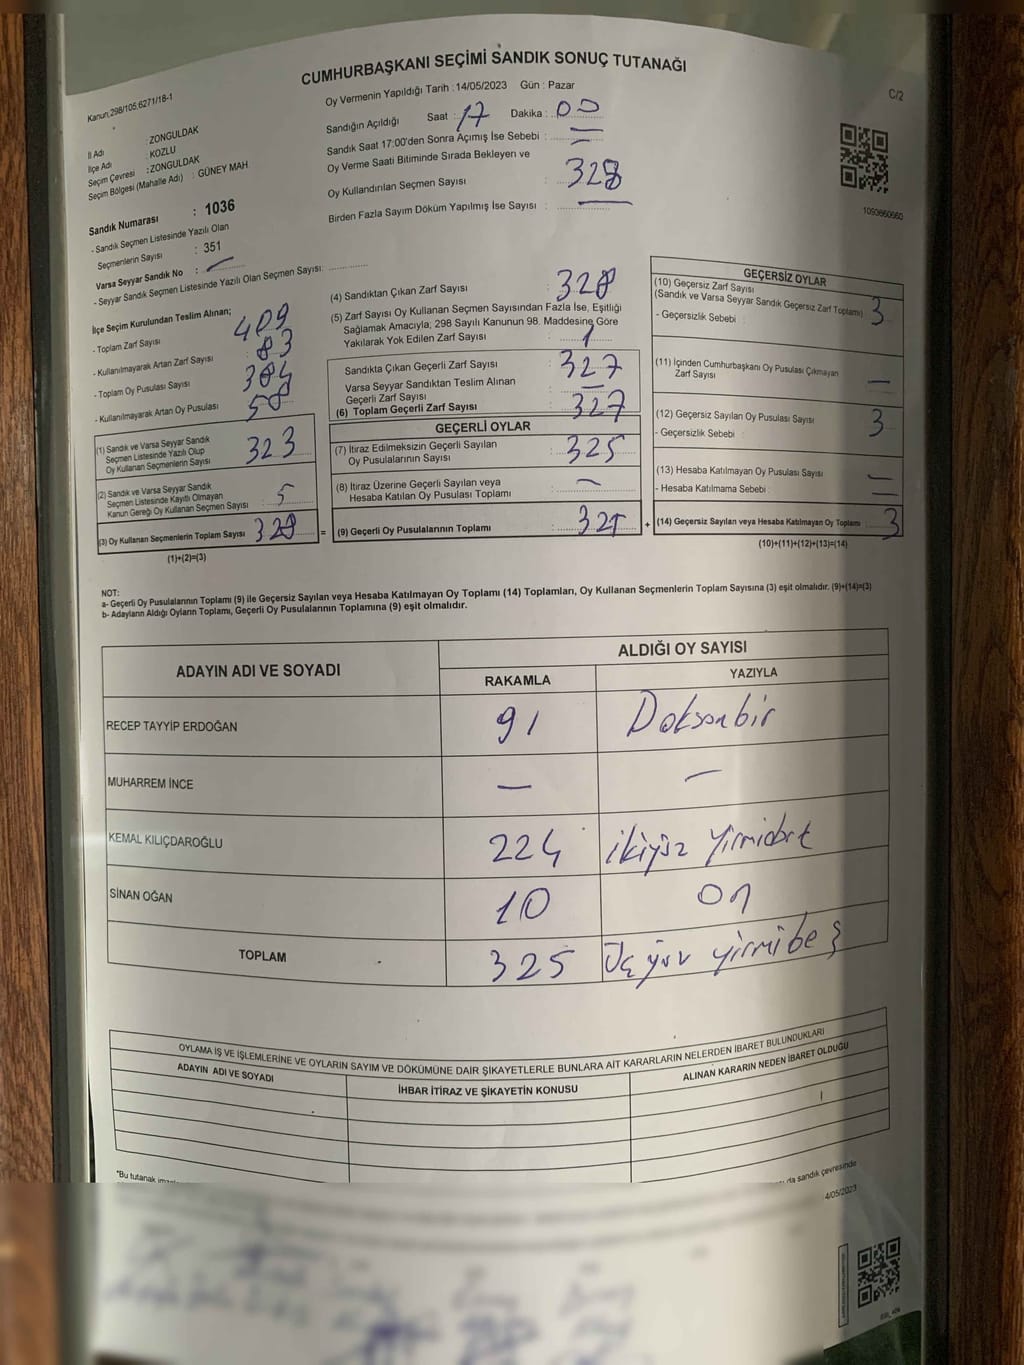 CUMHURBAŞKANI SEÇİMİ SANDIK SONUÇ TUTANAĞI
Kanun;298/105;6271/18-1
C/2
Oy Vermenin Yapıldığı Tarih : 14/05/2023 Gün : Pazar
Sandığın Açıldığı Saat : 17 Dakika : 00
Sandık Saat 17:00'den Sonra Açımış İse Sebebi : —
Oy Verme Saati Bitiminde Sırada Bekleyen ve
Oy Kullandırılan Seçmen Sayısı : 328
Birden Fazla Sayım Döküm Yapılmış İse Sayısı : —
1093860660
İl Adı : ZONGULDAK
İlçe Adı : KOZLU
Seçim Çevresi : ZONGULDAK
Seçim Bölgesi (Mahalle Adı) : GÜNEY MAH
Sandık Numarası : 1036
- Sandık Seçmen Listesinde Yazılı Olan
Seçmenlerin Sayısı : 351
Varsa Seyyar Sandık No : —
- Seyyar Sandık Seçmen Listesinde Yazılı Olan Seçmen Sayısı:
İlçe Seçim Kurulundan Teslim Alınan;
- Toplam Zarf Sayısı 409
- Kullanılmayarak Artan Zarf Sayısı : 83
- Toplam Oy Pusulası Sayısı
- Kullanılmayarak Artan Oy Pusulası 58
(1) Sandık ve Varsa Seyyar Sandık
Seçmen Listesinde Yazılı Olup
Oy Kullanan Seçmenlerin Sayısı 323
(2) Sandık ve Varsa Seyyar Sandık
Seçmen Listesinde Kayıtlı Olmayan
Kanun Gereği Oy Kullanan Seçmen Sayısı : 5
(3) Oy Kullanan Seçmenlerin Toplam Sayısı 328 =
(1)+(2)=(3)
(4) Sandıktan Çıkan Zarf Sayısı : 328
(5) Zarf Sayısı Oy Kullanan Seçmen Sayısından Fazla İse, Eşitliği
Sağlamak Amacıyla; 298 Sayılı Kanunun 98. Maddesine Göre
Yakılarak Yok Edilen Zarf Sayısı : 1
Sandıkta Çıkan Geçerli Zarf Sayısı : 327
Varsa Seyyar Sandıktan Teslim Alınan
Geçerli Zarf Sayısı : —
(6) Toplam Geçerli Zarf Sayısı : 327
GEÇERLİ OYLAR
(7) İtiraz Edilmeksizin Geçerli Sayılan
Oy Pusulalarının Sayısı : 325
(8) İtiraz Üzerine Geçerli Sayılan veya
Hesaba Katılan Oy Pusulası Toplamı : —
(9) Geçerli Oy Pusulalarının Toplamı : 325 +
GEÇERSİZ OYLAR
(10) Geçersiz Zarf Sayısı
(Sandık ve Varsa Seyyar Sandık Geçersiz Zarf Toplamı) 3
- Geçersizlik Sebebi :
(11) İçinden Cumhurbaşkanı Oy Pusulası Çıkmayan
Zarf Sayısı —
(12) Geçersiz Sayılan Oy Pusulası Sayısı 3
- Geçersizlik Sebebi :
(13) Hesaba Katılmayan Oy Pusulası Sayısı —
- Hesaba Katılmama Sebebi : —
(14) Geçersiz Sayılan veya Hesaba Katılmayan Oy Toplamı : 3
(10)+(11)+(12)+(13)=(14)
NOT:
a- Geçerli Oy Pusulalarının Toplamı (9) ile Geçersiz Sayılan veya Hesaba Katılmayan Oy Toplamı (14) Toplamları, Oy Kullanan Seçmenlerin Toplam Sayısına (3) eşit olmalıdır. (9)+(14)=(3)
b- Adayların Aldığı Oyların Toplamı, Geçerli Oy Pusulalarının Toplamına (9) eşit olmalıdır.
ADAYIN ADI VE SOYADI ALDIĞI OY SAYISI
RAKAMLA YAZIYLA
RECEP TAYYİP ERDOĞAN 91 Doksanbir
MUHARREM İNCE — —
KEMAL KILIÇDAROĞLU 224 ikiyüz yirmidört
SİNAN OĞAN 10 On
TOPLAM 325 Üç yüz yirmibeş
OYLAMA İŞ VE İŞLEMLERİNE VE OYLARIN SAYIM VE DÖKÜMÜNE DAİR ŞİKAYETLERLE BUNLARA AİT KARARLARIN NELERDEN İBARET BULUNDUKLARI
ADAYIN ADI VE SOYADI İHBAR İTİRAZ VE ŞİKAYETİN KONUSU ALINAN KARARIN NEDEN İBARET OLDUĞU
*Bu tutanak da sandık çevresinde
4/05/2023